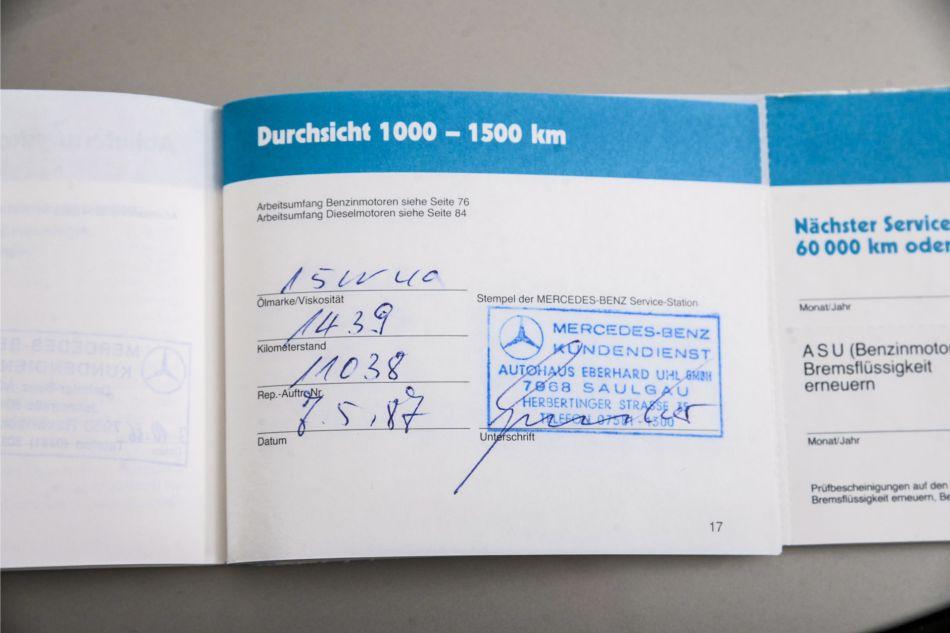 Durchsicht 1000 – 1500 km
Arbeitsumfang Benzinmotoren siehe Seite 76
Arbeitsumfang Dieselmotoren siehe Seite 84
15W40
Ölmarke/Viskosität
1439
Kilometerstand
11038
Rep.-Auftr.Nr.
7.5.87
Datum
Stempel der MERCEDES-BENZ Service-Station
MERCEDES-BENZ
KUNDENDIENST
AUTOHAUS EBERHARD UHL GMBH
7968 SAULGAU
HERBERTINGER STRASSE
TELEFON 07581-
Unterschrift
17
Nächster Service
60 000 km oder
Monat/Jahr
A S U (Benzinmoto
Bremsflüssigkeit
erneuern
Monat/Jahr
Prüfbescheinigungen auf den
Bremsflüssigkeit erneuern, Be